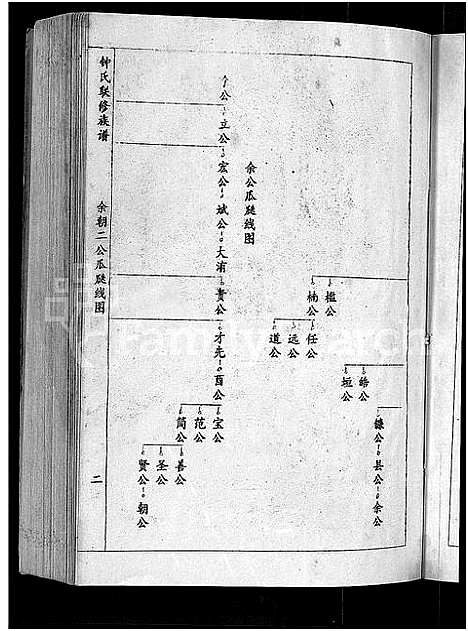 钟氏联修族谱
余朝二公瓜瓞线图
二
余公瓜瓞线图
个公
立公
宏公
斌公
大洧
贵公
才先
酉公
宝公
范公
简公
善公
圣公
贤公
朝公
槛公
楠公
任公
远公
道公
皓公
垣公
县公
余公